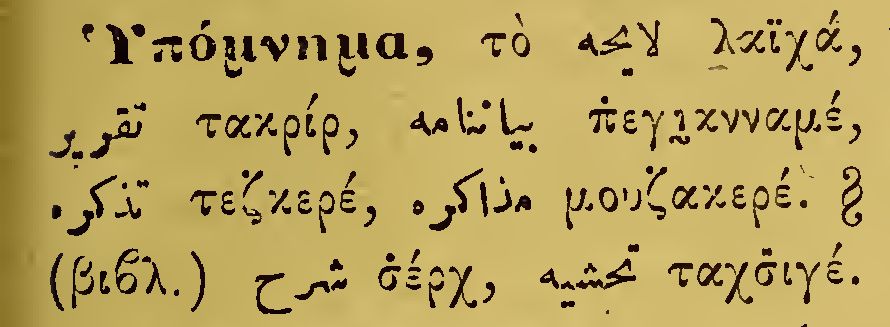 Ὑπόμνημα, τὸ لایحه λαϊχά,
تقریر τακρίρ, بیاننامه π̇εγιανναμέ,
تذكره τεζκερέ, مذاكره μουζακερέ. §
(βιβλ.) شرح σ̇έρχ, تحشیه ταχσ̈ιγέ.